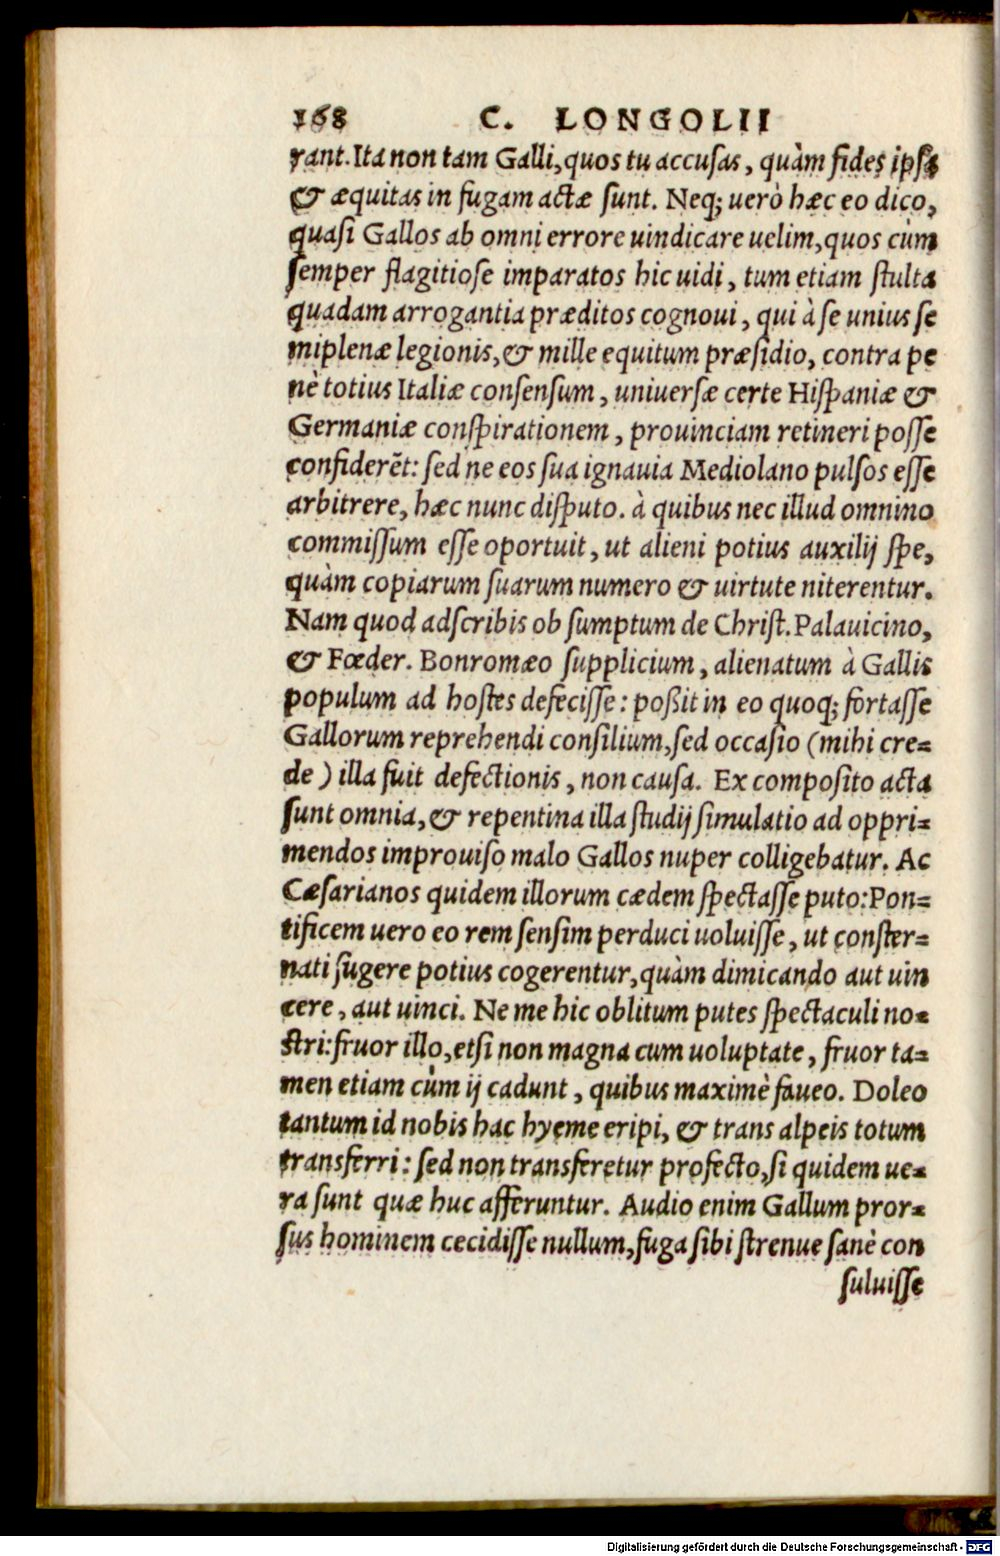 168 C. LONGOLII
rant. Ita non tam Galli, quos tu accusas, quàm fides ipsa
& æquitas in fugam actæ sunt. Neq; uerò hæc eo dico,
quasi Gallos ab omni errore uindicare uelim, quos cùm
semper flagitiose imparatos hic uidi, tum etiam stulta
quadam arrogantia præditos cognoui, qui à se unius se
miplenæ legionis, & mille equitum præsidio, contra pe
nè totius Italiæ consensum, uniuersæ certe Hispaniæ &
Germaniæ conspirationem, prouinciam retineri posse
confiderẽt: sed ne eos sua ignauia Mediolano pulsos esse
arbitrere, hæc nunc disputo. à quibus nec illud omnino
commissum esse oportuit, ut alieni potius auxilij spe,
quàm copiarum suarum numero & uirtute niterentur.
Nam quod adscribis ob sumptum de Christ. Palauicino,
& Fœder. Bonromæo supplicium, alienatum à Gallis
populum ad hostes defecisse: poßit in eo quoq; fortasse
Gallorum reprehendi consilium, sed occasio (mihi cre=
de) illa fuit defectionis, non causa. Ex composito acta
sunt omnia, & repentina illa studij simulatio ad oppri=
mendos improuiso malo Gallos nuper colligebatur. Ac
Cæsarianos quidem illorum cædem spectasse puto: Pon=
tificem uero eo rem sensim perduci uoluisse, ut conster=
nati fugere potius cogerentur, quàm dimicando aut uin
cere, aut uinci. Ne me hic oblitum putes spectaculi no=
stri: fruor illo, etsi non magna cum uoluptate, fruor ta=
men etiam cùm ij cadunt, quibus maximè faueo. Doleo
tantum id nobis hac hyeme eripi, & trans alpeis totum
transferri: sed non transferetur profecto, si quidem ue=
ra sunt quæ huc afferuntur. Audio enim Gallum pror=
sus hominem cecidisse nullum, fuga sibi strenue sanè con
suluisse
Digitalisierung gefördert durch die Deutsche Forschungsgemeinschaft - DFG